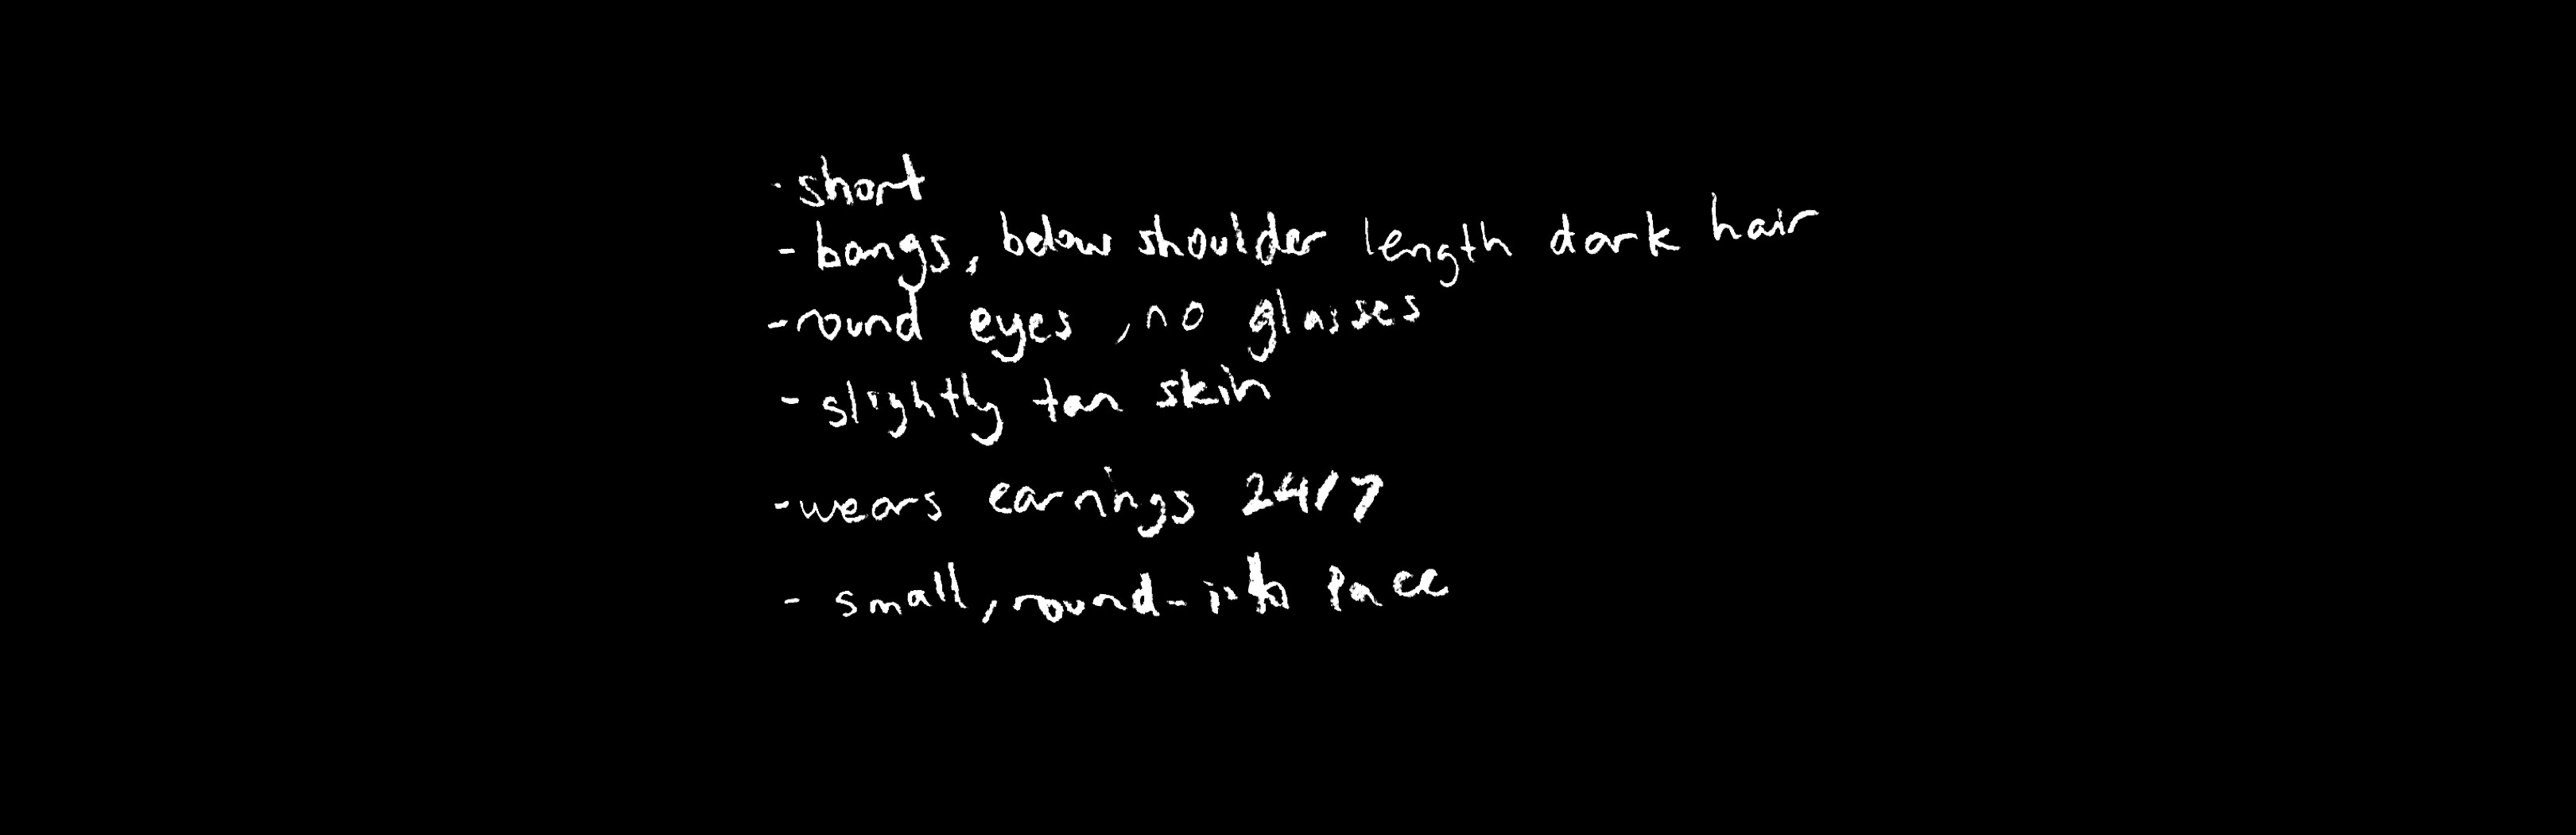 · short
- bangs, below shoulder length dark hair
- round eyes, no glasses
- slightly tan skin
- wears earrings 24/7
- small, round-ish face